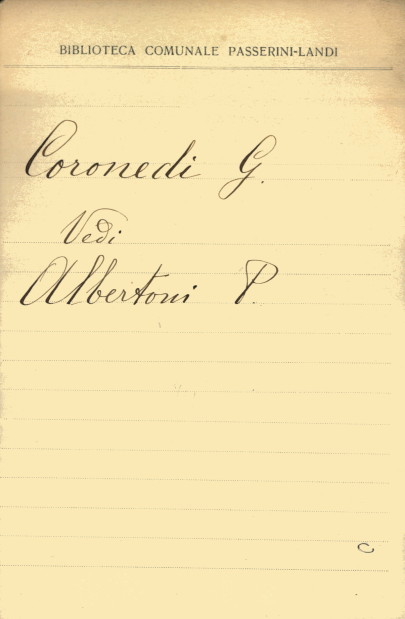 BIBLIOTECA COMUNALE PASSERINI-LANDI
Coronedi G.
Vedi
Albertoni P.
C